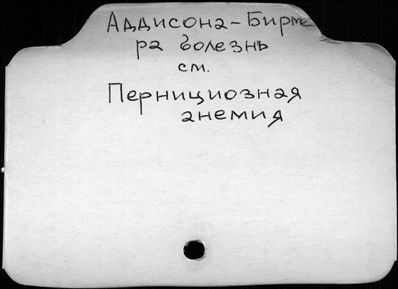 Аддисона-Бирме
ра болезнь
см.
Пернициозная
анемия